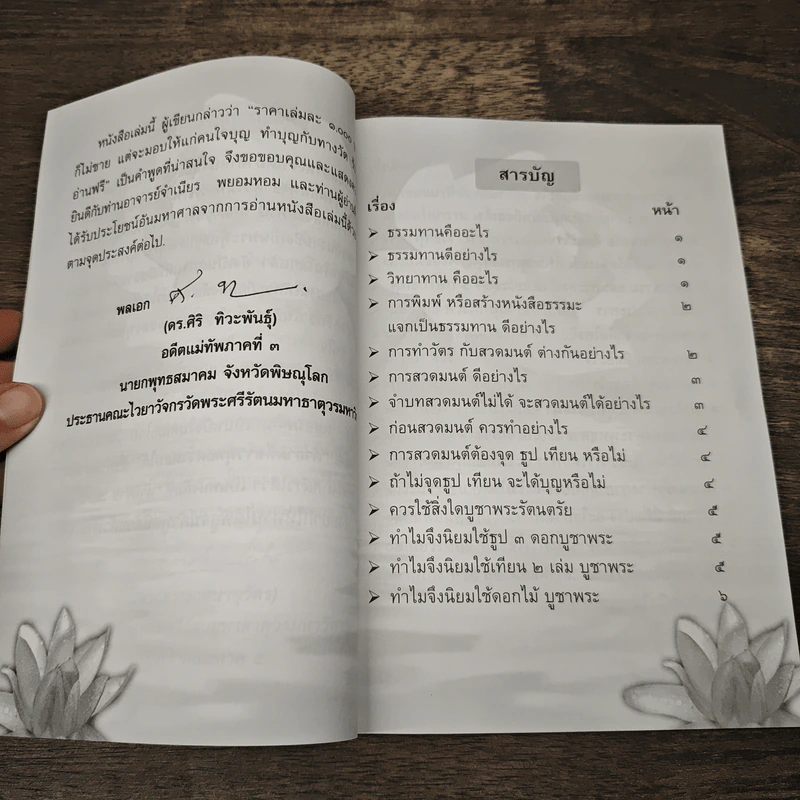 หนังสือเล่มนี้ ผู้เขียนกล่าวว่า "ราคาเล่มละ ๑,๐๐๐
ก็ไม่ขาย แต่จะมอบให้แก่คนใจบุญ ทำบุญกับทางวัด
อ่านฟรี" เป็นคำพูดที่น่าสนใจ จึงขอขอบคุณและแสดง
ยินดีกับท่านอาจารย์จำเนียร พยอมหอม และท่านผู้อ่าน
ได้รับประโยชน์อันมหาศาลจากการอ่านหนังสือเล่มนี้
ตามจุดประสงค์ต่อไป.
พลเอก
(ดร.ศิริ ทิวะพันธุ์)
อดีตแม่ทัพภาคที่ ๓
นายกพุทธสมาคม จังหวัดพิษณุโลก
ประธานคณะไวยาวัจกรวัดพระศรีรัตนมหาธาตุวรมหาวิ
สารบัญ
เรื่อง หน้า
➢ ธรรมทานคืออะไร ๑
➢ ธรรมทานดีอย่างไร ๑
➢ วิทยาทาน คืออะไร ๑
➢ การพิมพ์ หรือสร้างหนังสือธรรมะ ๒
แจกเป็นธรรมทาน ดีอย่างไร
➢ การทำวัตร กับสวดมนต์ ต่างกันอย่างไร ๒
➢ การสวดมนต์ ดีอย่างไร ๓
➢ จำบทสวดมนต์ไม่ได้ จะสวดมนต์ได้อย่างไร ๓
➢ ก่อนสวดมนต์ ควรทำอย่างไร ๔
➢ การสวดมนต์ต้องจุด ธูป เทียน หรือไม่ ๔
➢ ถ้าไม่จุดธูป เทียน จะได้บุญหรือไม่ ๔
➢ ควรใช้สิ่งใดบูชาพระรัตนตรัย ๕
➢ ทำไมจึงนิยมใช้ธูป ๓ ดอกบูชาพระ ๕
➢ ทำไมจึงนิยมใช้เทียน ๒ เล่ม บูชาพระ ๕
➢ ทำไมจึงนิยมใช้ดอกไม้ บูชาพระ ๖